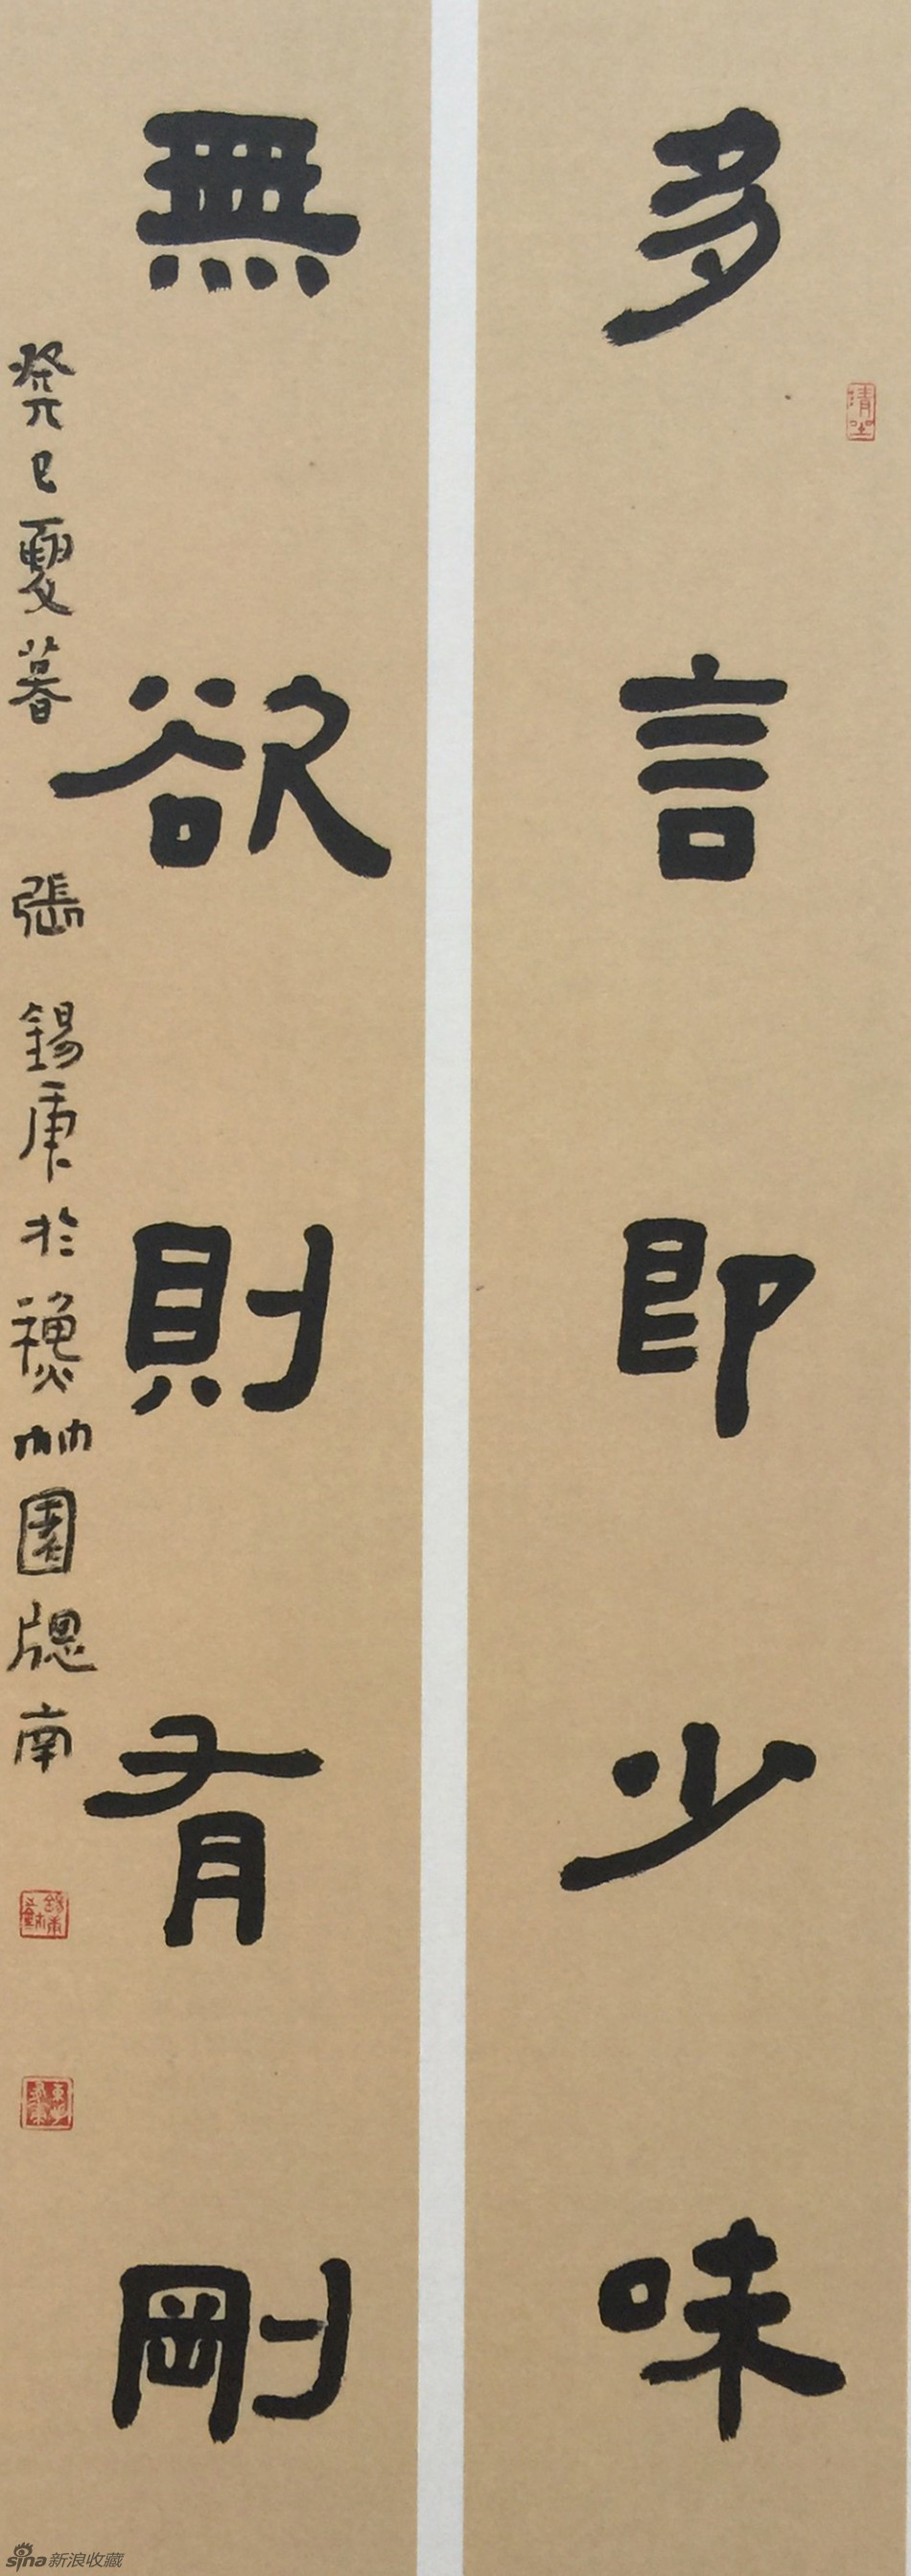 多言即少味
無欲則有剛
癸巳夏暮 張錫庚於穗竹園牕南
清坐
sina新浪收藏